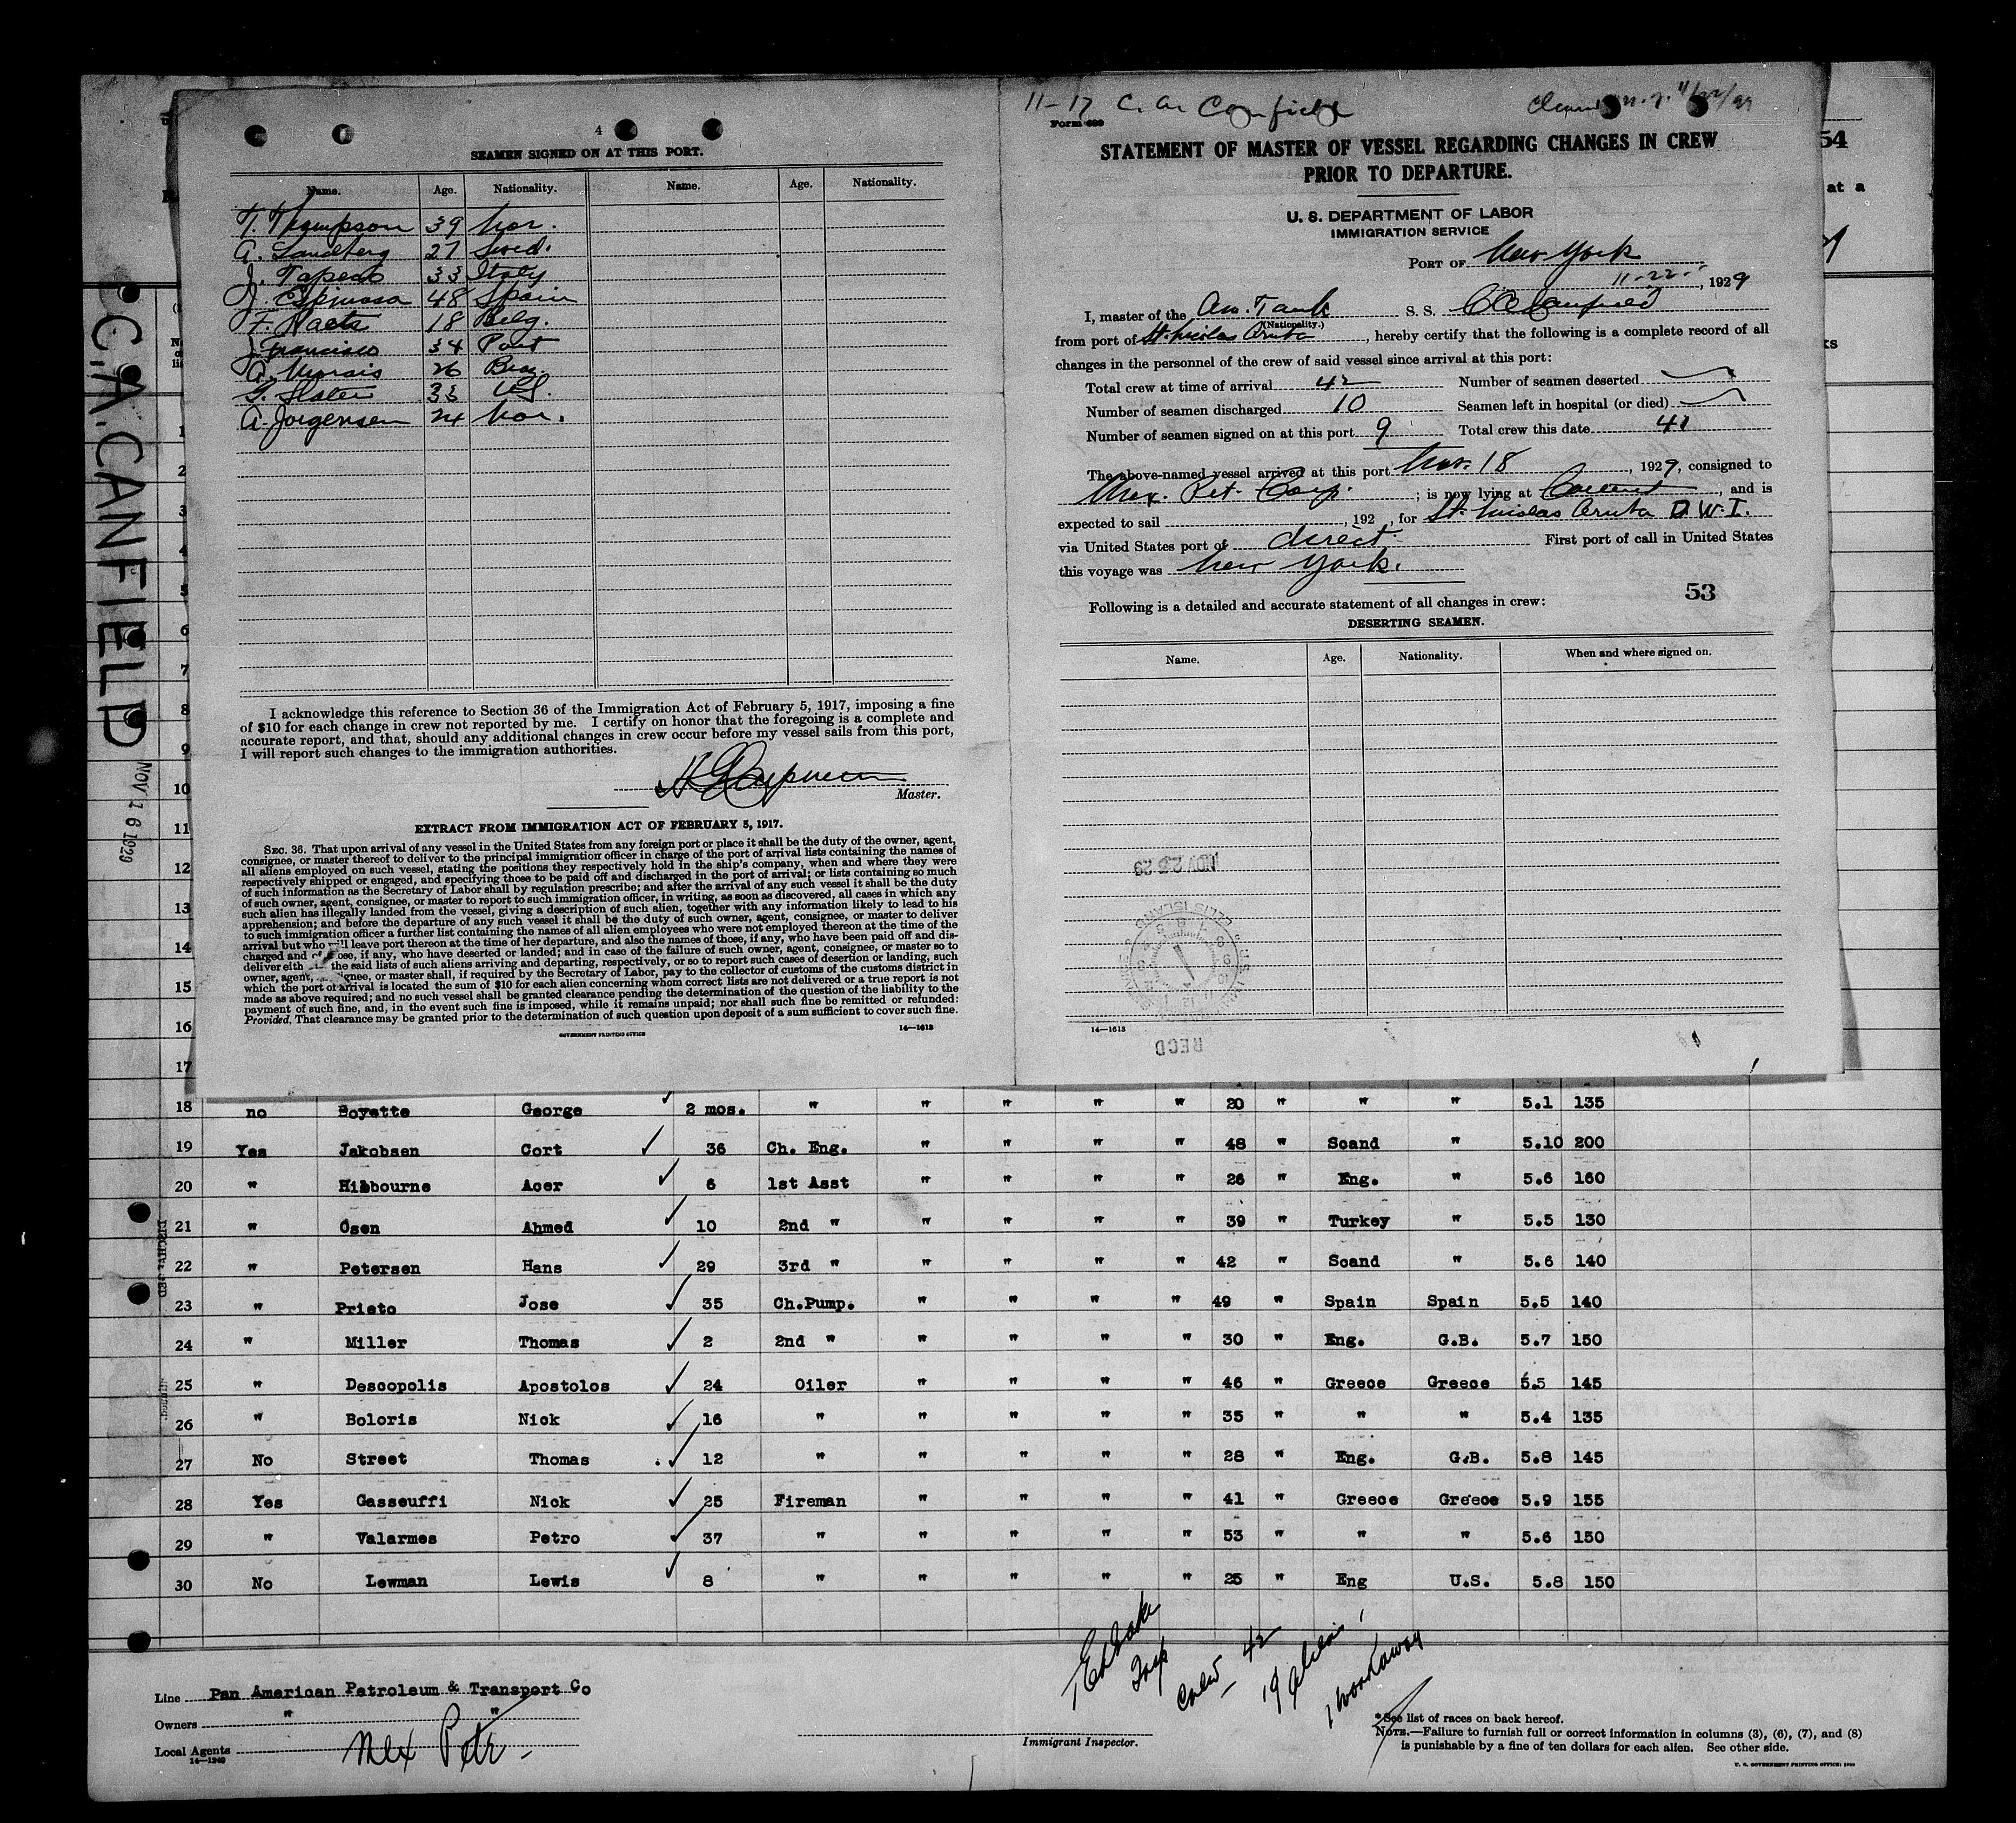 4
SEAMEN SIGNED ON AT THIS PORT.
Name. Age. Nationality. Name. Age. Nationality.
T. Thompson 39 Nor.
A. Sandberg 27 Swed.
J. 33 Italy
J. Espinosa 48 Spain
F. Raets 18 Belg.
J. Francisco 34 Port
A. Morais 26 Braz.
T. Slater 33 U.S.
A. Jorgensen 24 Nor.
I acknowledge this reference to Section 36 of the Immigration Act of February 5, 1917, imposing a fine
of $10 for each change in crew not reported by me. I certify on honor that the foregoing is a complete and
accurate report, and that, should any additional changes in crew occur before my vessel sails from this port,
I will report such changes to the immigration authorities.
Master.
EXTRACT FROM IMMIGRATION ACT OF FEBRUARY 5, 1917.
SEC. 36. That upon arrival of any vessel in the United States from any foreign port or place it shall be the duty of the owner, agent,
consignee, or master thereof to deliver to the principal immigration officer in charge of the port of arrival lists containing the names of
all aliens employed on such vessel, stating the positions they respectively hold in the ship's company, when and where they were
respectively shipped or engaged, and specifying those to be paid off and discharged in the port of arrival; or lists containing so much
of such information as the Secretary of Labor shall by regulation prescribe; and after the arrival of any such vessel it shall be the duty
of such owner, agent, consignee, or master to report to such immigration officer, in writing, as soon as discovered, all cases in which any
such alien has illegally landed from the vessel, giving a description of such alien, together with any information likely to lead to his
apprehension; and before the departure of any such vessel it shall be the duty of such owner, agent, consignee, or master to deliver
to such immigration officer a further list containing the names of all alien employees who were not employed thereon at the time of the
arrival but who will leave port thereon at the time of her departure, and also the names of those, if any, who have been paid off and dis-
charged and of those, if any, who have deserted or landed; and in case of the failure of such owner, agent, consignee, or master so to
deliver eith the said lists of such aliens arriving and departing, respectively, or so to report such cases of desertion or landing, such
owner, agent, signee, or master shall, if required by the Secretary of Labor, pay to the collector of customs of the customs district in
which the port of arrival is located the sum of $10 for each alien concerning whom correct lists are not delivered or a true report is not
made as above required; and no such vessel shall be granted clearance pending the determination of the question of the liability to the
payment of such fine, and, in the event such fine is imposed, while it remains unpaid; nor shall such fine be remitted or refunded:
Provided, That clearance may be granted prior to the determination of such question upon deposit of a sum sufficient to cover such fine.
GOVERNMENT PRINTING OFFICE 14—1613
11-17 C. A. Canfield 11/22/29
Form 689
STATEMENT OF MASTER OF VESSEL REGARDING CHANGES IN CREW
PRIOR TO DEPARTURE.
U. S. DEPARTMENT OF LABOR
IMMIGRATION SERVICE
PORT OF New York
11-22-, 1929
I, master of the Am. Tank S. S. C A Canfield
(Nationality.)
from port of St. Nicolas Aruba, hereby certify that the following is a complete record of all
changes in the personnel of the crew of said vessel since arrival at this port:
Total crew at time of arrival 42 Number of seamen deserted
Number of seamen discharged 10 Seamen left in hospital (or died)
Number of seamen signed on at this port 9 Total crew this date 41
The above-named vessel arrived at this port Nov. 18, 1929, consigned to
Mex. Pet. Corp.; is now lying at Carteret, and is
expected to sail , 192 , for St. Nicolas Aruba D.W.I.
via United States port of direct. First port of call in United States
this voyage was New York.
53
Following is a detailed and accurate statement of all changes in crew:
DESERTING SEAMEN.
Name. Age. Nationality. When and where signed on.
NOV 23 29
14—1613
RECD
54
at a
C.A. CANFIELD
NOV 16 1929
1
2
3
4
5
6
7
8
9
10
11
12
13
14
15
16
17
18 no Boyette George 2 mos. " " " " " 20 " " " 5.1 135
19 Yes Jakobsen Cort 36 Ch. Eng. " " " " 48 " Scand " 5.10 200
20 " Hibbourne Acer 6 1st Asst " " " " 26 " Eng. " 5.6 160
21 " Osen Ahmed 10 2nd " " " " " 39 " Turkey " 5.5 130
22 " Petersen Hans 29 3rd " " " " " 42 " Scand " 5.6 140
23 " Prieto Jose 35 Ch.Pump. " " " " 49 " Spain Spain 5.5 140
24 " Miller Thomas 2 2nd " " " " " 30 " Eng. G.B. 5.7 150
25 " Descopolis Apostolos 24 Oiler " " " " 46 " Greece Greece 5.5 145
26 " Boloris Nick 16 " " " " " 35 " " " 5.4 135
27 No Street Thomas 12 " " " " " 28 " Eng. G.B. 5.8 145
28 Yes Gasseuffi Nick 25 Fireman " " " " 41 " Greece Greece 5.9 155
29 " Valarmes Petro 37 " " " " " 53 " " " 5.6 150
30 No Lewman Lewis 8 " " " " " 25 " Eng U.S. 5.8 150
Crew 42
19 aliens
1 workaway
Line Pan American Petroleum & Transport Co
Owners " "
Local Agents Mex Petr
14—1240
Immigrant Inspector.
* See list of races on back hereof.
NOTE.—Failure to furnish full or correct information in columns (3), (6), (7), and (8)
is punishable by a fine of ten dollars for each alien. See other side.
U. S. GOVERNMENT PRINTING OFFICE: 1929